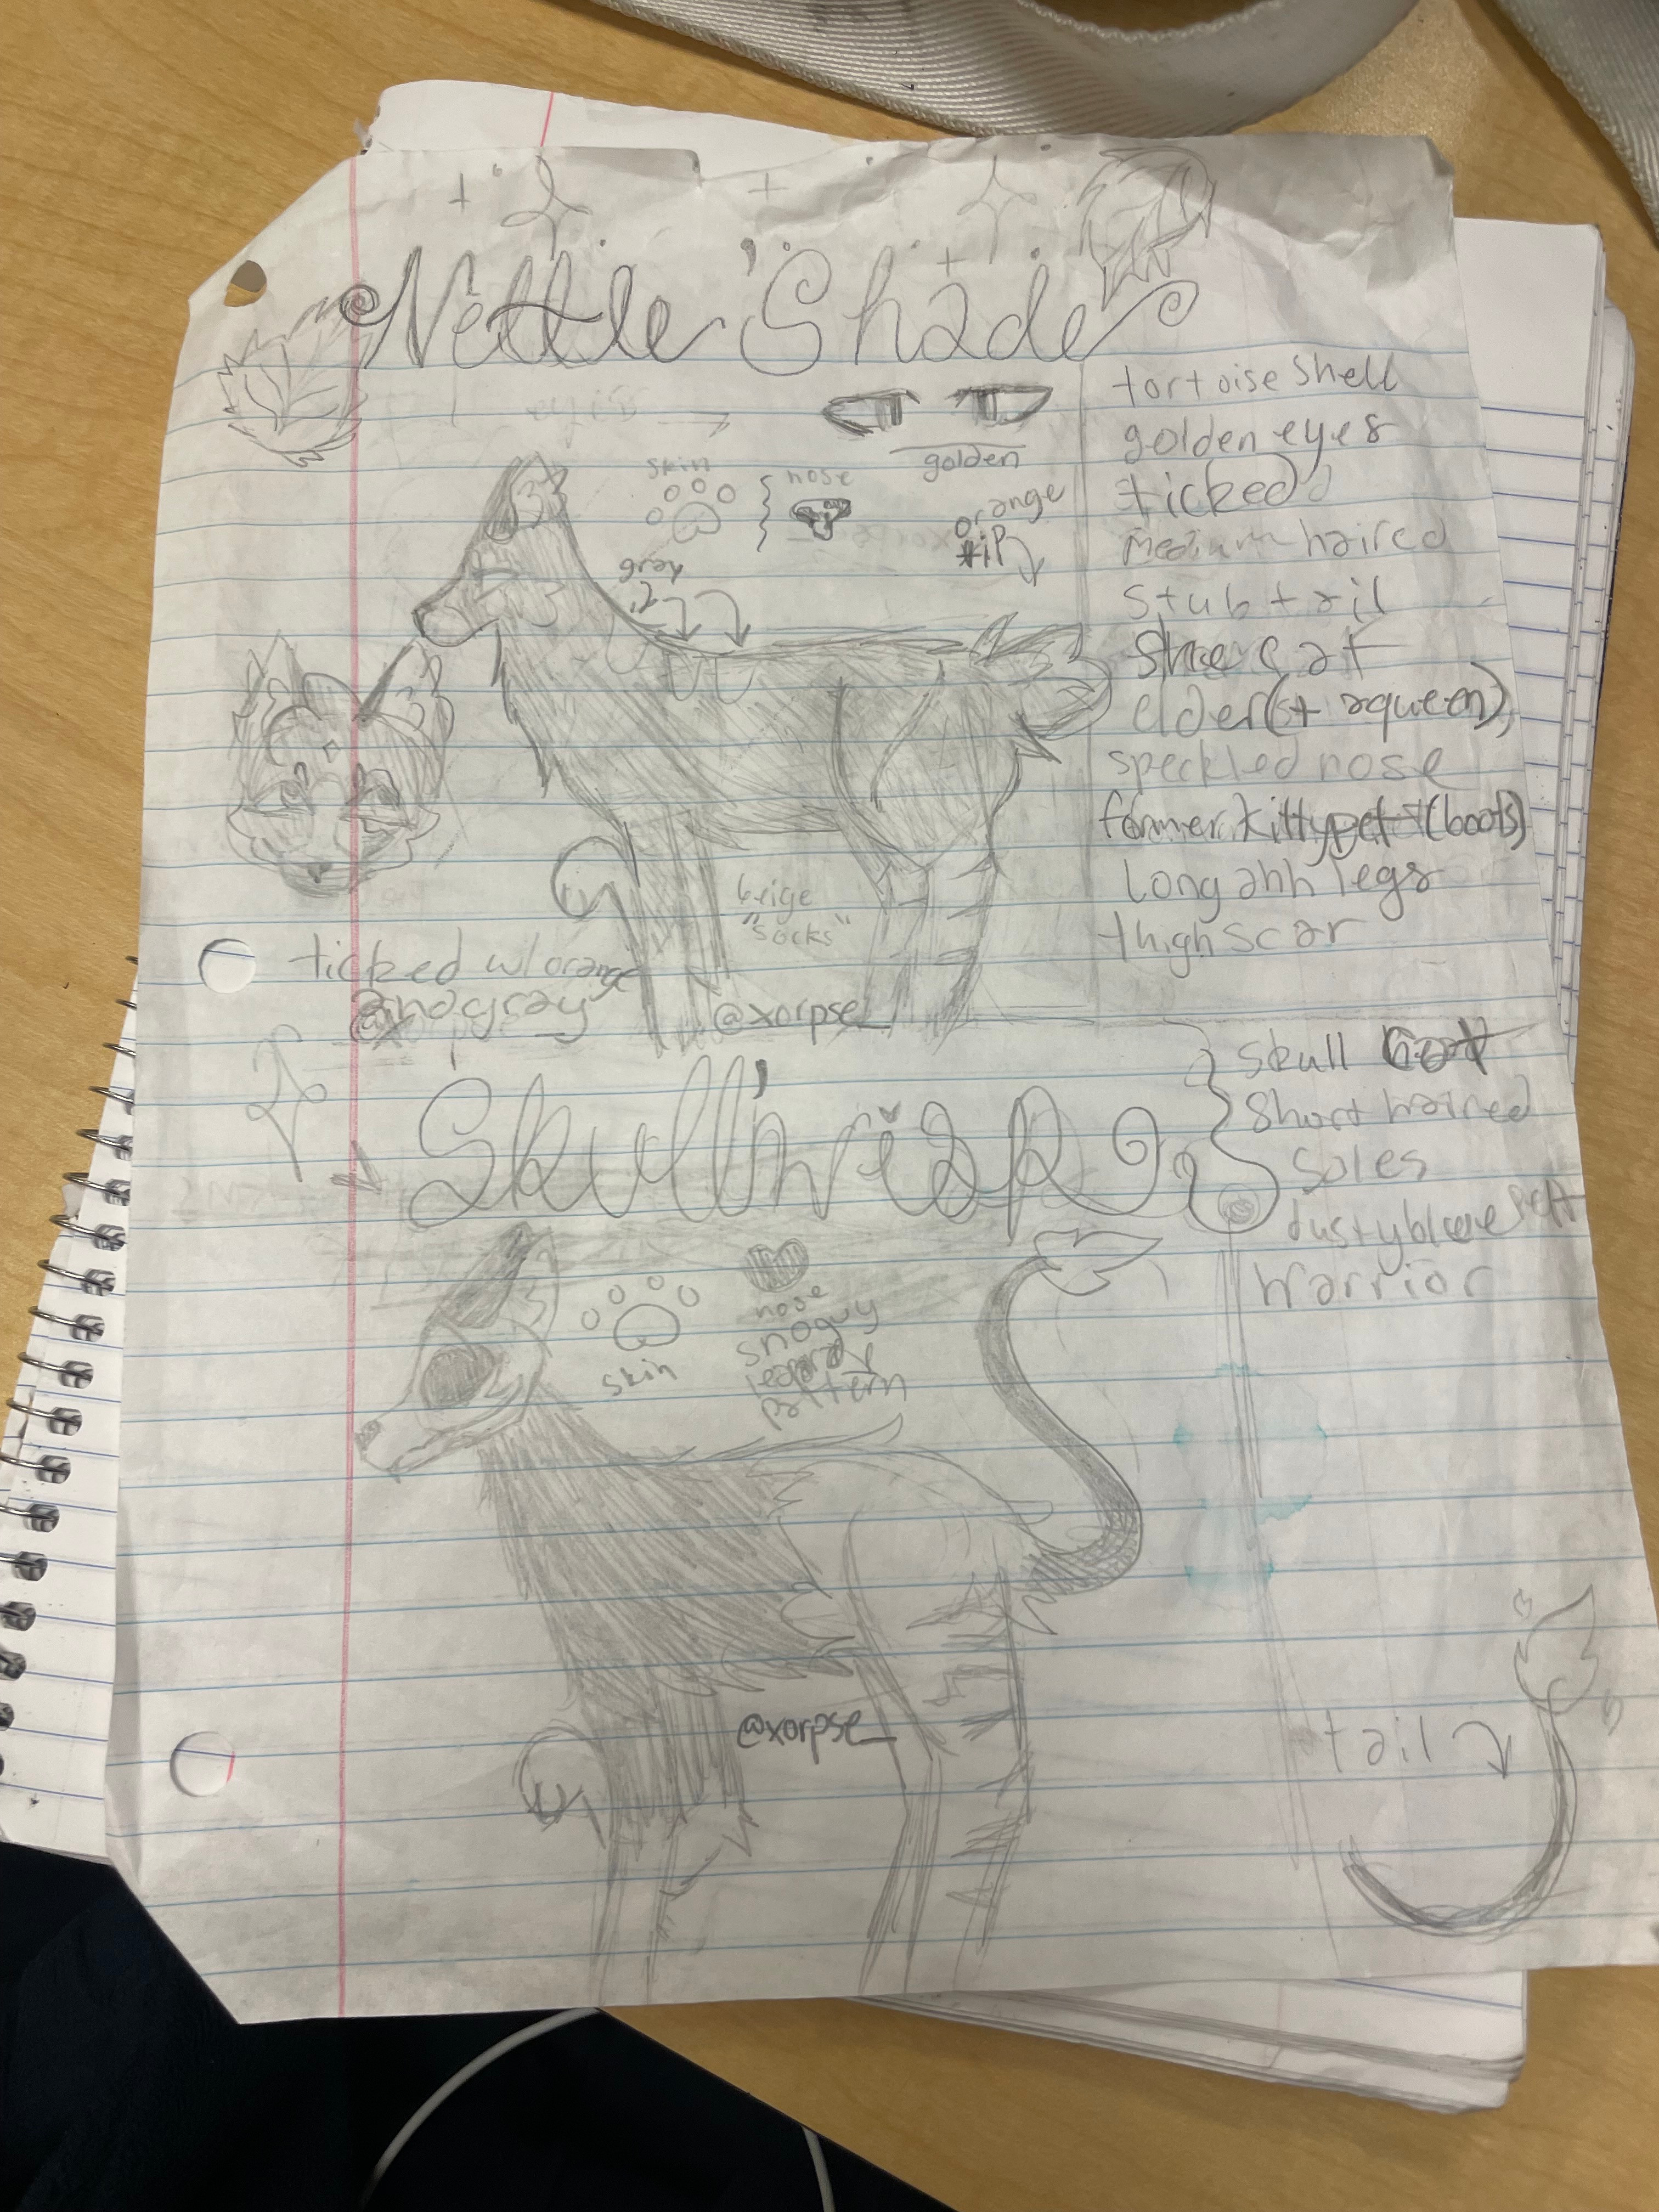 Nettle'Shade
golden
skin
nose
orange
tip
gray
tortoise shell
golden eyes
ticked
medium haired
stub tail
elder (+ a queen)
speckled nose
former kittypet (boots)
long ahh legs
thigh scar
beige
"socks"
ticked w/ orange
and gray
@xorpse_
Skull'wisp
skull
short haired
soles
dusty blue pelt
Warrior
skin
nose
pattern
@xorpse_
tail